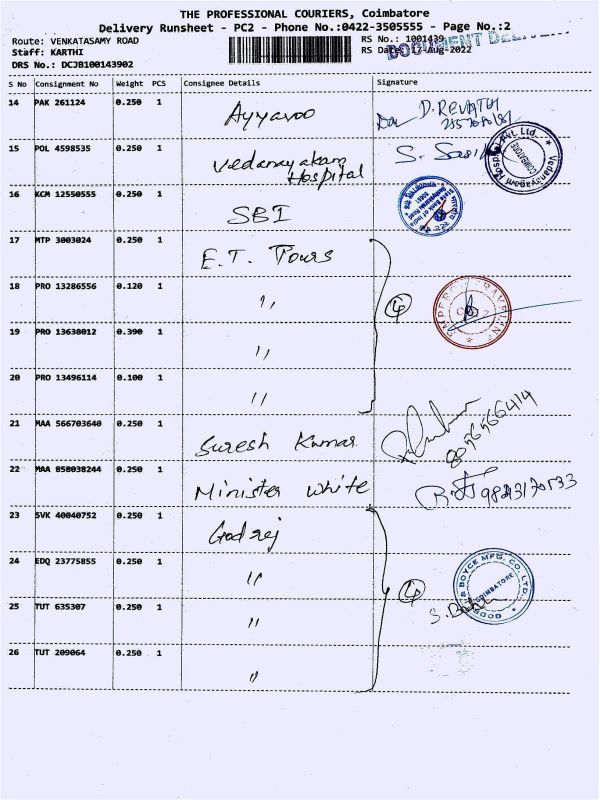 THE PROFESSIONAL COURIERS, Coimbatore
Delivery Runsheet - PC2 - Phone No.:0422-3505555 - Page No.:2
Route: VENKATASAMY ROAD RS No.: 1001439
Staff: KARTHI RS Date: 17-Aug-2022
DOCUMENT
DRS No.: DCJB100143902
S No Consignment No Weight PCS Consignee Details Signature
14 PAK 261124 0.250 1 Ayyavoo D. REVATHI
15 POL 4598535 0.250 1 Vedanayakam Hospital S. Sasi
Vedanayagam Hospital Pvt. Ltd. COIMBATORE
16 KCM 12550555 0.250 1 SBI
State Bank of India
17 MTP 3003024 0.250 1 E.T. Tours
18 PRO 13286556 0.120 1 " 4
19 PRO 13638012 0.390 1 "
20 PRO 13496114 0.100 1 "
21 MAA 566703640 0.250 1 Suresh Kumar 8056566414
22 MAA 858038244 0.250 1 Minister White
23 SVK 40040752 0.250 1 Godrej
24 EDQ 23775855 0.250 1 " 4
GODREJ & BOYCE MFG. CO. LTD. COIMBATORE
25 TUT 635307 0.250 1 "
26 TUT 209064 0.250 1 "